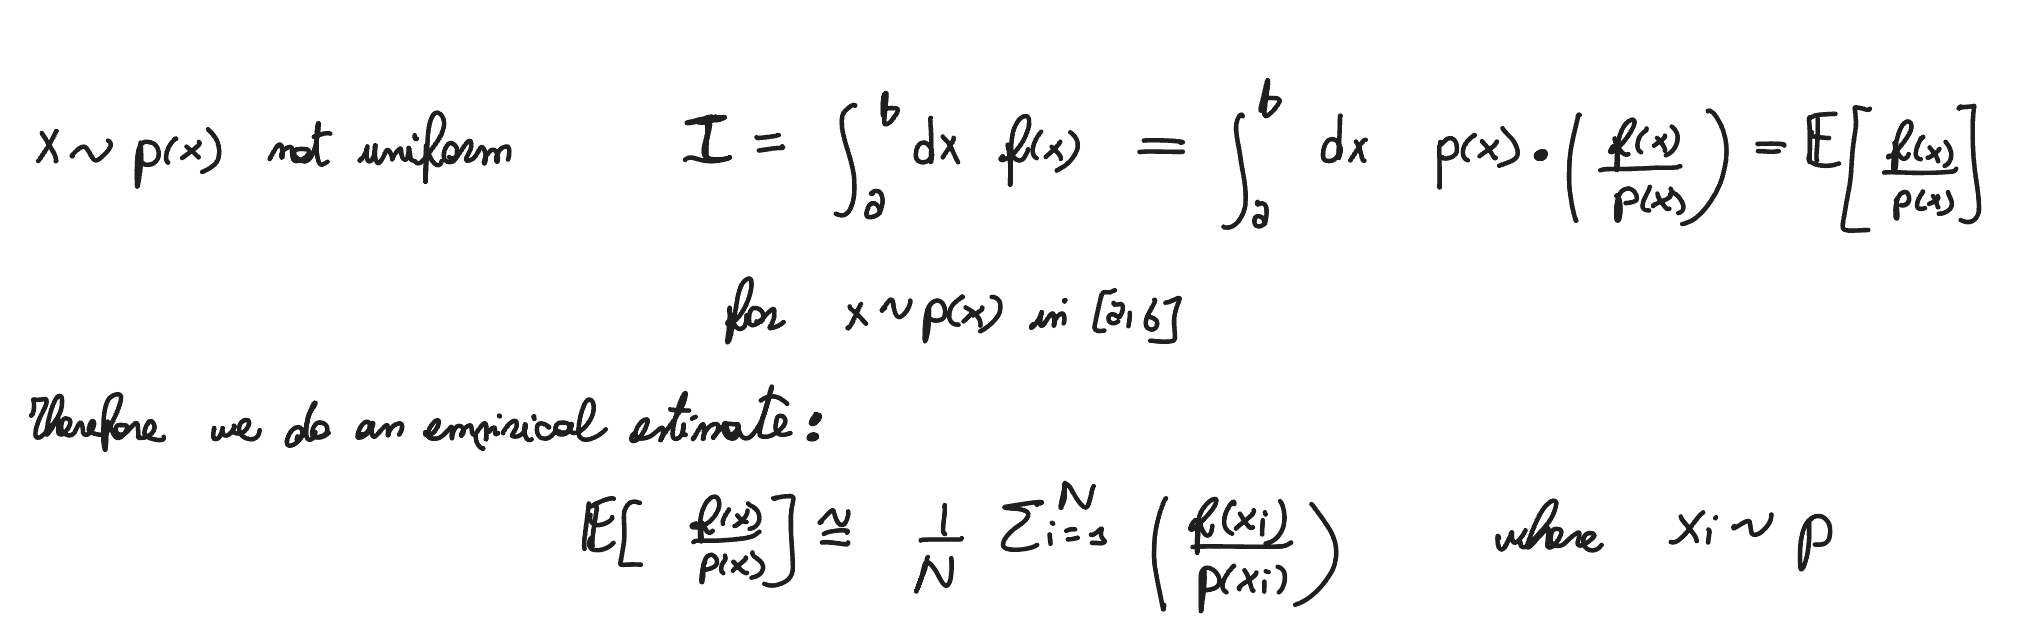 x ~ p(x) not uniform I = ∫_a^b dx f(x) = ∫_a^b dx p(x) · (f(x)/p(x)) = 𝔼[f(x)/p(x)]
for x ~ p(x) in [a, b]
Therefore we do an empirical estimate:
𝔼[f(x)/p(x)] ≅ 1/N Σ_{i=1}^N (f(xᵢ)/p(xᵢ)) where xᵢ ~ p